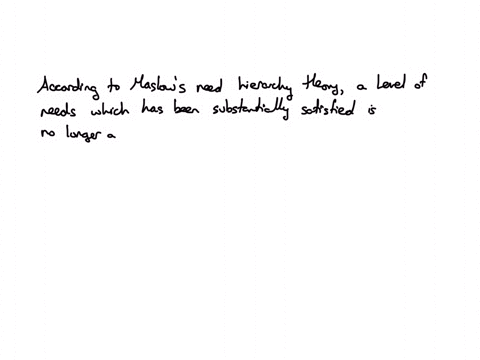 According to Maslow's need hierarchy theory, a level of
needs which has been substantially satisfied is
no longer a